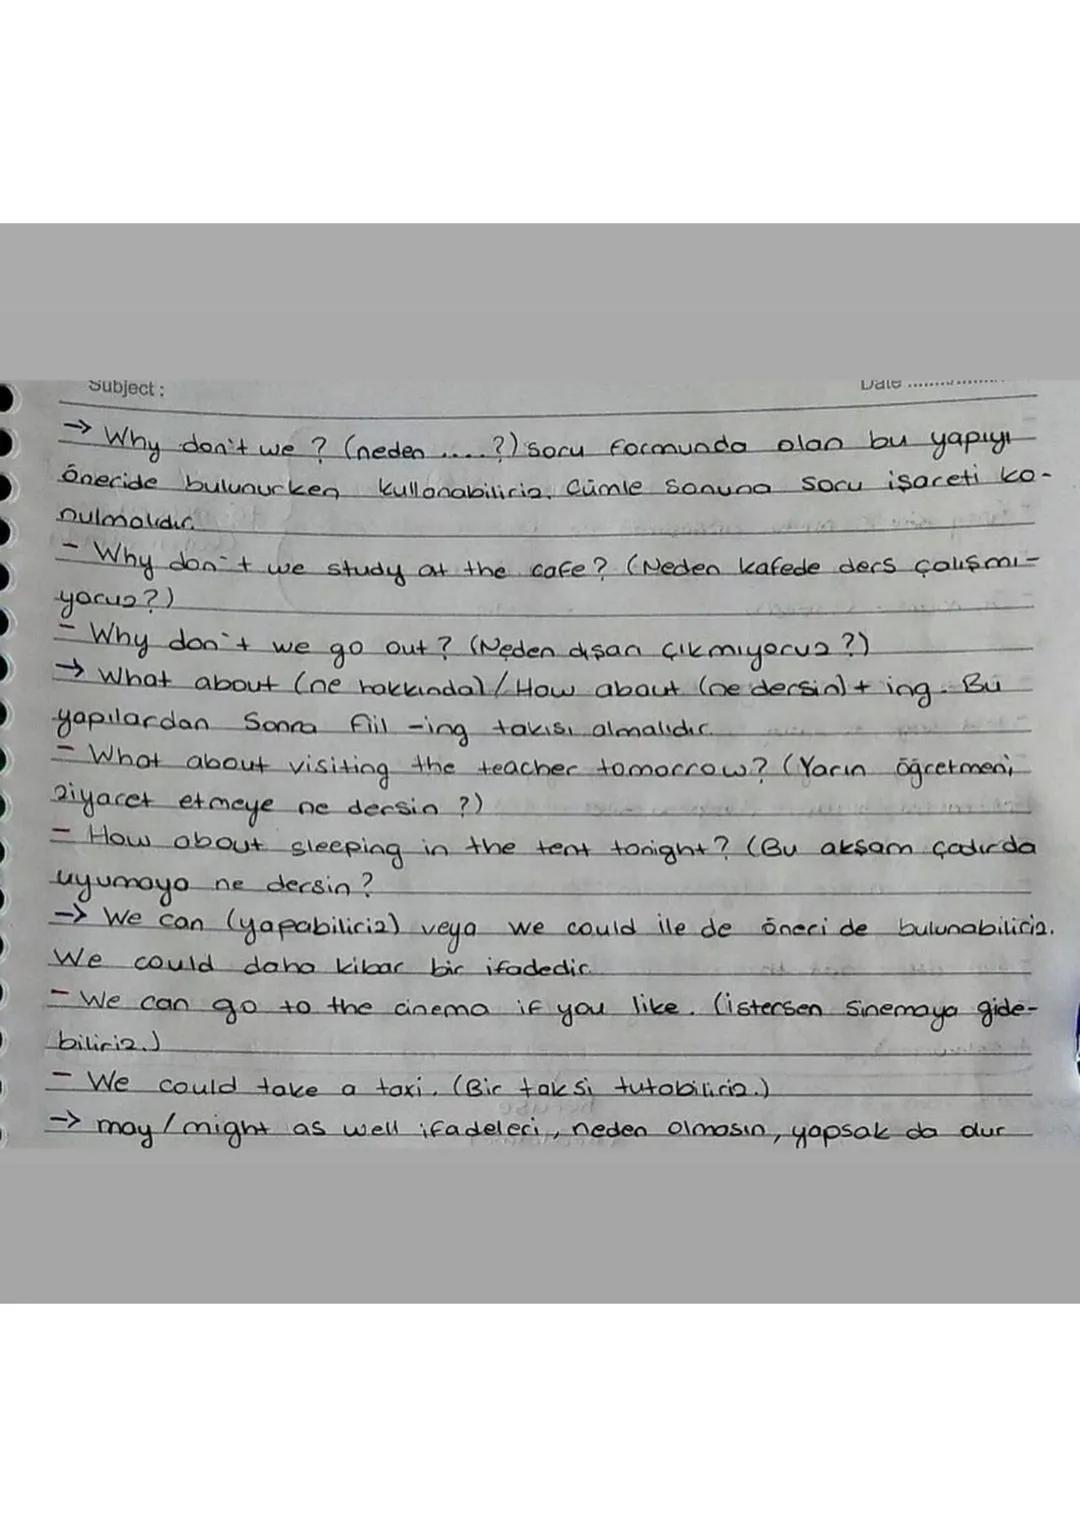 Subject : Date ..................
→ Why don't we ? (neden ....?) soru formunda olan bu yapıyı
öneride bulunurken kullanabiliriz. Cümle sonuna soru işareti ko-
nulmalıdır.
- Why don't we study at the cafe? (Neden kafede ders çalışmı-
yoruz?)
- Why don't we go out? (Neden dışarı çıkmıyoruz?)
→ What about (ne hakkında) / How about (ne dersin) + ing. Bu
yapılardan sonra fiil -ing takısı almalıdır.
- What about visiting the teacher tomorrow? (Yarın öğretmeni
ziyaret etmeye ne dersin?)
- How about sleeping in the tent tonight? (Bu akşam çadırda
uyumaya ne dersin?
→ We can (yapabiliriz) veya we could ile de öneri de bulunabiliriz.
We could daha kibar bir ifadedir.
- We can go to the cinema if you like. (İstersen sinemaya gide-
biliriz.)
- We could take a taxi. (Bir taksi tutabiliriz.)
→ may / might as well ifadeleri, neden olmasın, yapsak da olur